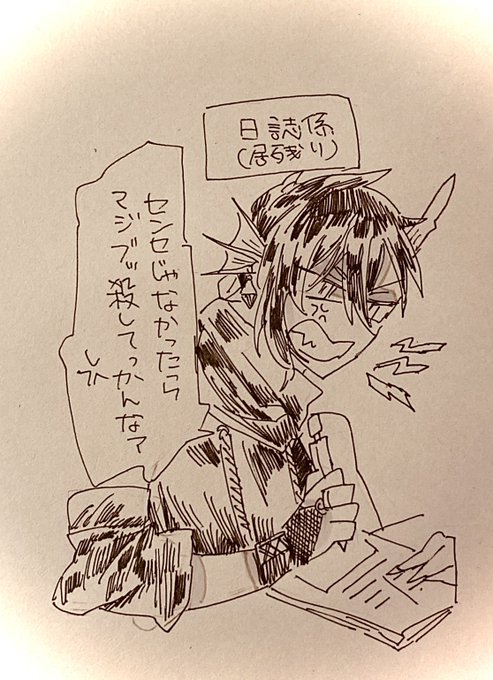 日誌係
(居残り)
センセじゃなかったら
マジブッ殺してっかんなァ